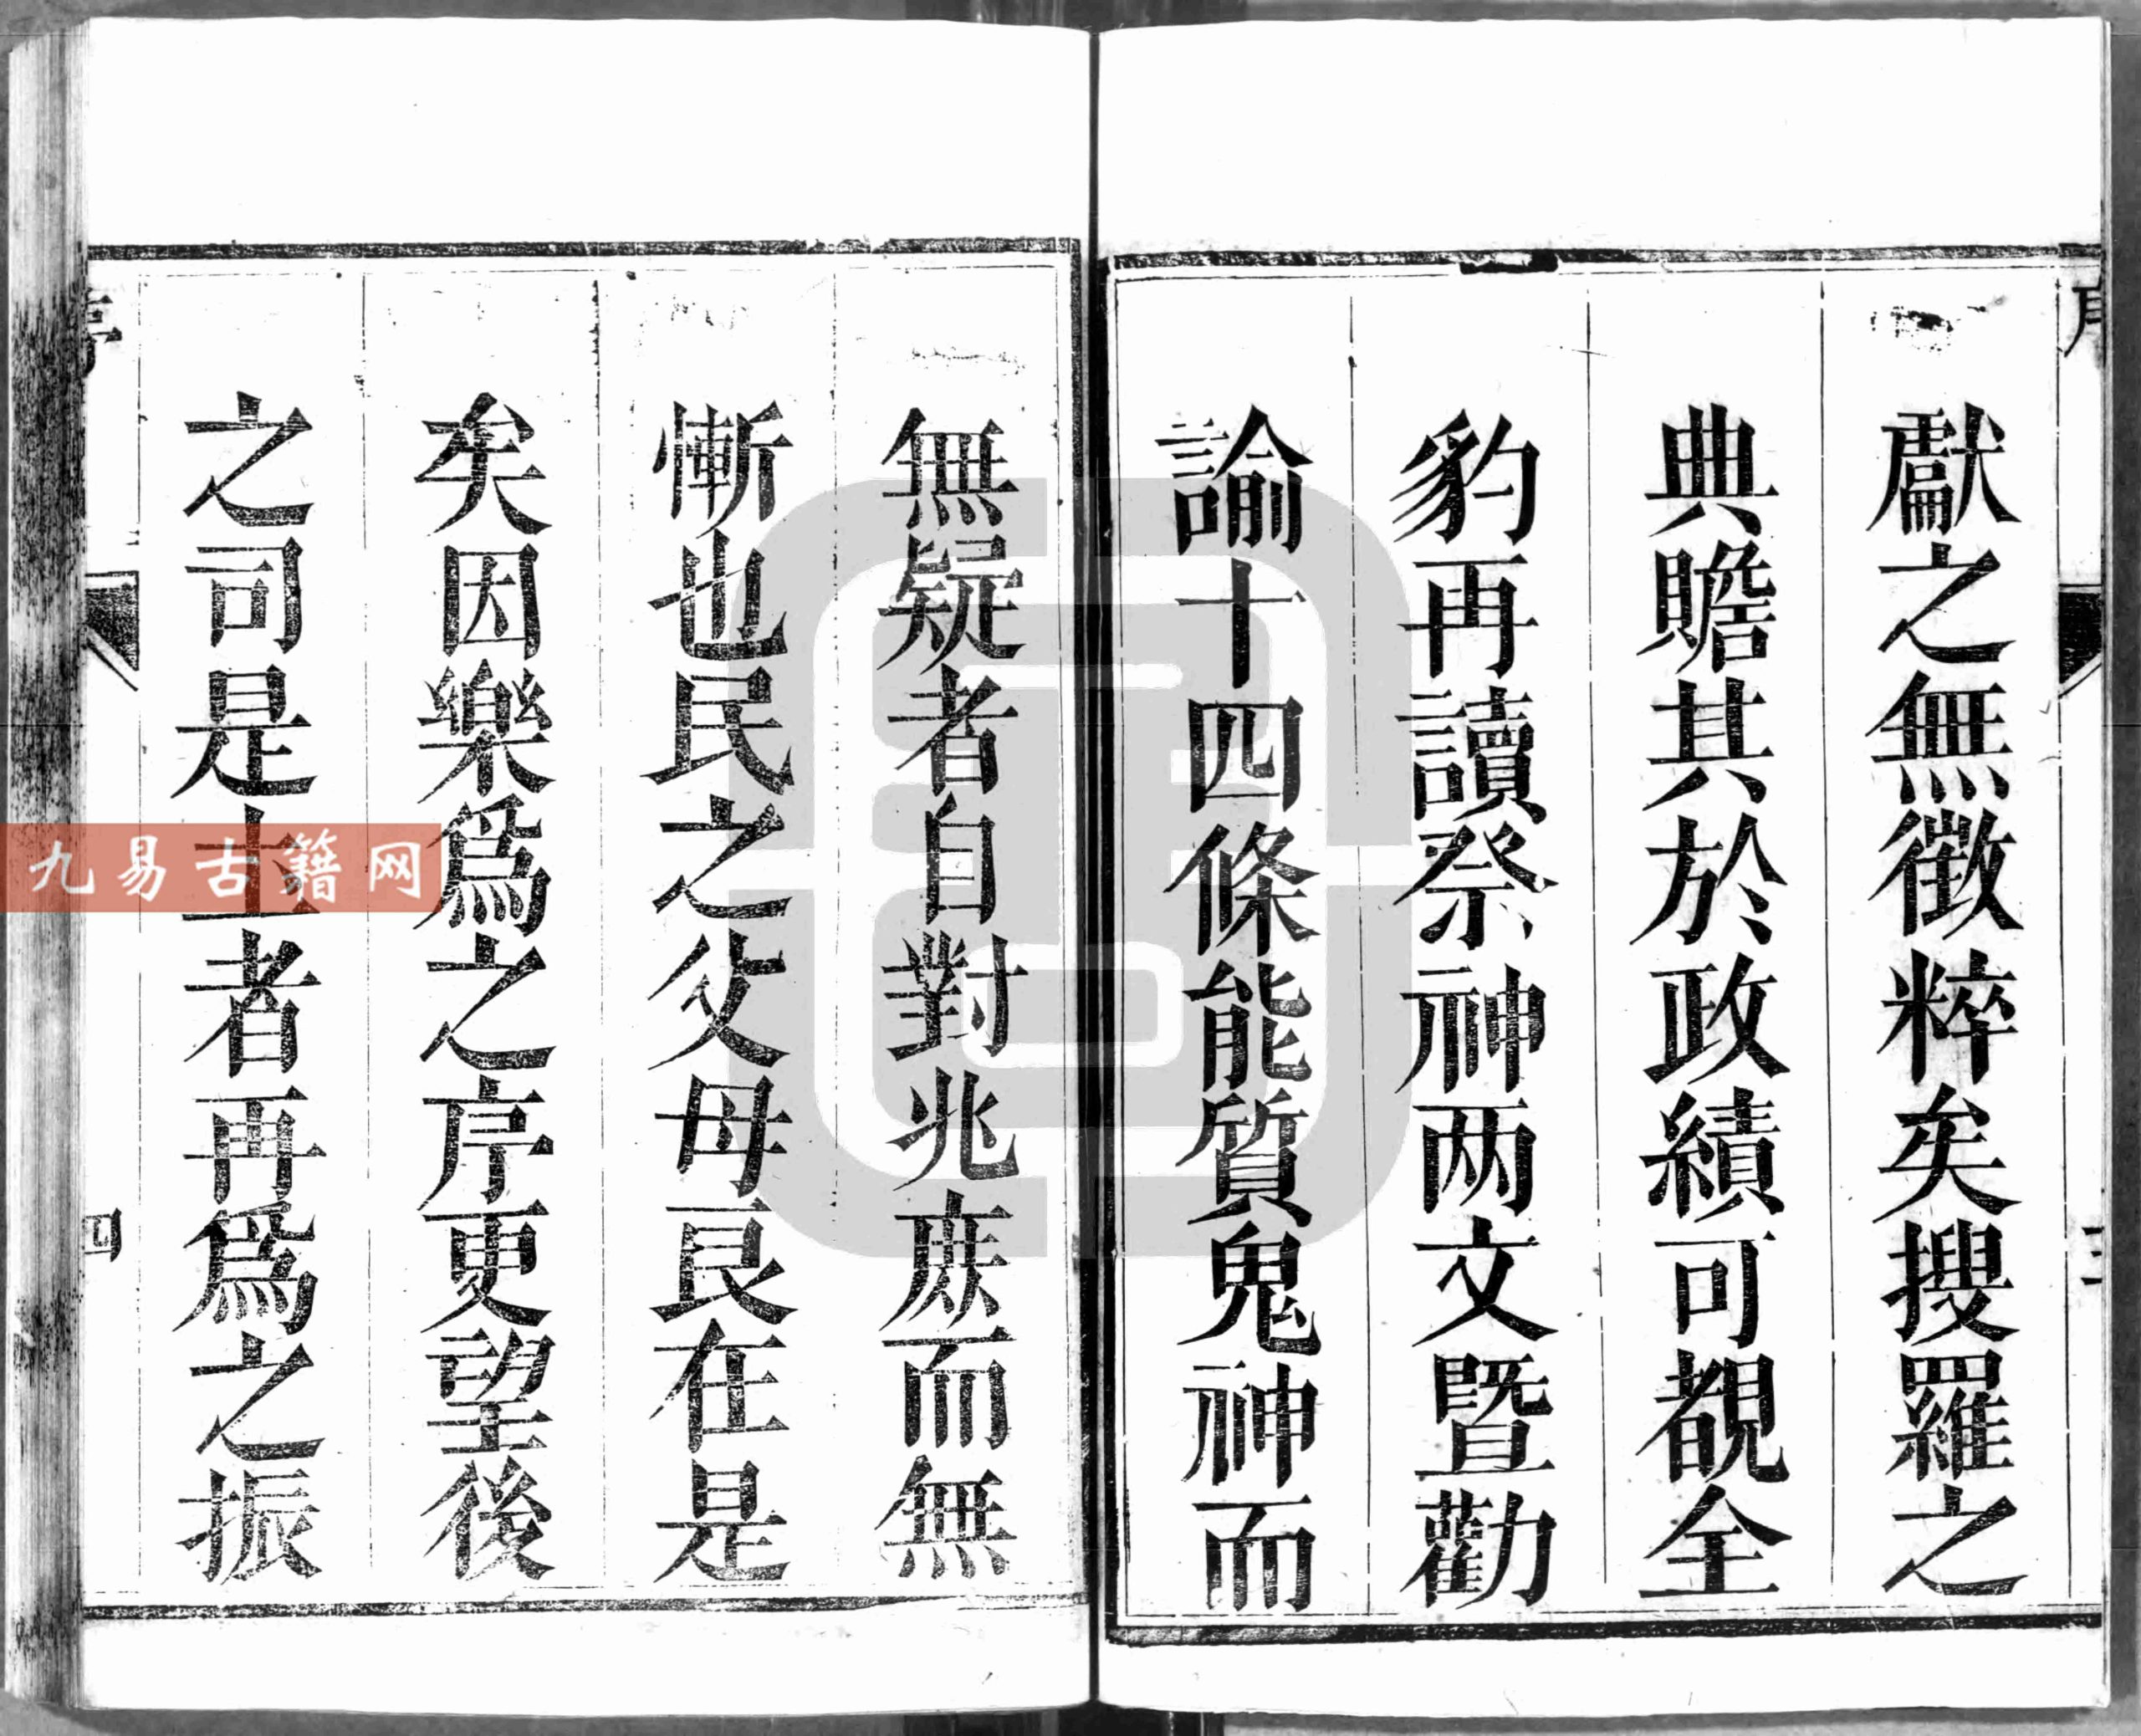 獻之無徵粹矣搜羅之
典贍其於政績可覩全
豹再讀祭神两文暨勸
諭十四條能質鬼神而
無疑者自對兆庶而無
慚也民之父母良在是
矣因樂爲之序更望後
之司是土者再爲之振
四
九易古籍网